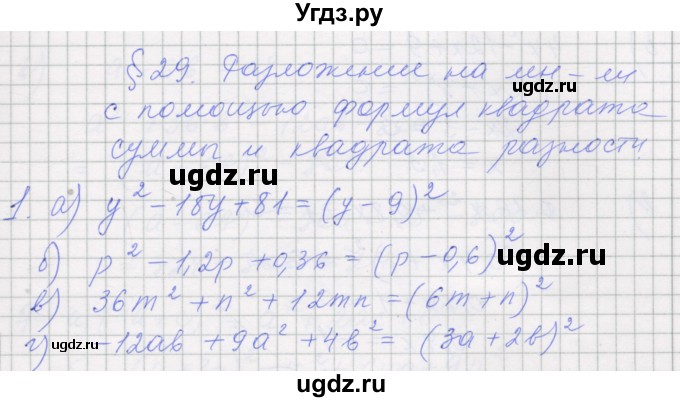 Угдз.ру
§ 29. Разложение на мн-ли
с помощью формул квадрата
суммы и квадрата разности
1. а) y² - 18y + 81 = (y - 9)²
б) p² - 1,2p + 0,36 = (p - 0,6)²
в) 36m² + n² + 12mn = (6m + n)²
г) -12ab + 9a² + 4b² = (3a + 2b)²
ugdz.ru
ugdz.ru
ugdz.ru
ugdz.ru
ugdz.ru
ugdz.ru